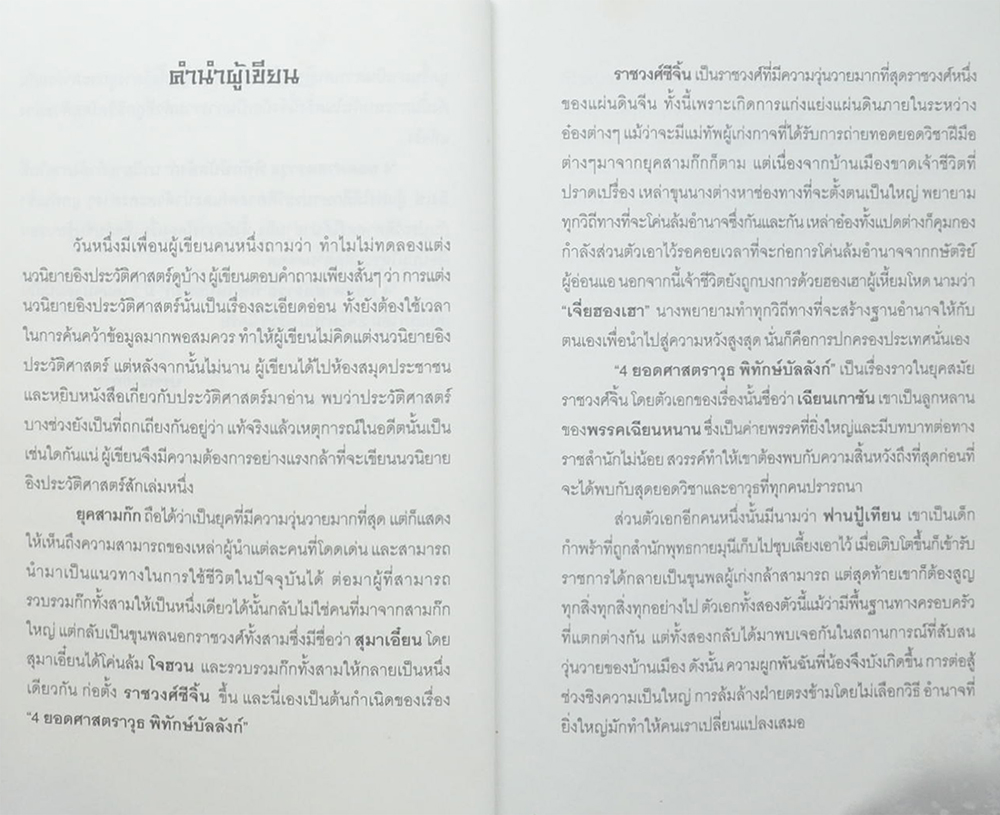 คำนำผู้เขียน
วันหนึ่งมีเพื่อนผู้เขียนคนหนึ่งถามว่า ทำไมไม่ทดลองแต่ง
นวนิยายอิงประวัติศาสตร์ดูบ้าง ผู้เขียนตอบคำถามเพียงสั้นๆ ว่า การแต่ง
นวนิยายอิงประวัติศาสตร์นั้นเป็นเรื่องละเอียดอ่อน ทั้งยังต้องใช้เวลา
ในการค้นคว้าข้อมูลมากพอสมควร ทำให้ผู้เขียนไม่คิดแต่งนวนิยายอิง
ประวัติศาสตร์ แต่หลังจากนั้นไม่นาน ผู้เขียนได้ไปห้องสมุดประชาชน
และหยิบหนังสือเกี่ยวกับประวัติศาสตร์มาอ่าน พบว่าประวัติศาสตร์
บางช่วงยังเป็นที่ถกเถียงกันอยู่ว่า แท้จริงแล้วเหตุการณ์ในอดีตนั้นเป็น
เช่นใดกันแน่ ผู้เขียนจึงมีความต้องการอย่างแรงกล้าที่จะเขียนนวนิยาย
อิงประวัติศาสตร์สักเล่มหนึ่ง
ยุคสามก๊ก ถือได้ว่าเป็นยุคที่มีความวุ่นวายมากที่สุด แต่ก็แสดง
ให้เห็นถึงความสามารถของเหล่าผู้นำแต่ละคนที่โดดเด่น และสามารถ
นำมาเป็นแนวทางในการใช้ชีวิตในปัจจุบันได้ ต่อมาผู้ที่สามารถ
รวบรวมก๊กทั้งสามให้เป็นหนึ่งเดียวได้นั้นกลับไม่ใช่คนที่มาจากสามก๊ก
ใหญ่ แต่กลับเป็นขุนพลนอกราชวงศ์ทั้งสามซึ่งมีชื่อว่า สุมาเอี๋ยน โดย
สุมาเอี๋ยนได้โค่นล้ม โจฮวน และรวบรวมก๊กทั้งสามให้กลายเป็นหนึ่ง
เดียวกัน ก่อตั้ง ราชวงศ์ซีจิ้น ขึ้น และนี่เองเป็นต้นกำเนิดของเรื่อง
“4 ยอดศาสตราวุธ พิทักษ์บัลลังก์”
ราชวงศ์ซีจิ้น เป็นราชวงศ์ที่มีความวุ่นวายมากที่สุดราชวงศ์หนึ่ง
ของแผ่นดินจีน ทั้งนี้เพราะเกิดการแก่งแย่งแผ่นดินภายในระหว่าง
อ๋องต่างๆ แม้ว่าจะมีแม่ทัพผู้เก่งกาจที่ได้รับการถ่ายทอดยอดวิชาฝีมือ
ต่างๆมาจากยุคสามก๊กก็ตาม แต่เนื่องจากบ้านเมืองขาดเจ้าชีวิตที่
ปราดเปรื่อง เหล่าขุนนางต่างหาช่องทางที่จะตั้งตนเป็นใหญ่ พยายาม
ทุกวิถีทางที่จะโค่นล้มอำนาจซึ่งกันและกัน เหล่าอ๋องทั้งแปดต่างก็คุมกอง
กำลังส่วนตัวเอาไว้รอคอยเวลาที่จะก่อการโค่นล้มอำนาจจากกษัตริย์
ผู้อ่อนแอ นอกจากนี้เจ้าชีวิตยังถูกบงการด้วยฮองเฮาผู้เหี้ยมโหด นามว่า
“เจี่ยฮองเฮา” นางพยายามทำทุกวิถีทางที่จะสร้างฐานอำนาจให้กับ
ตนเองเพื่อนำไปสู่ความหวังสูงสุด นั่นก็คือการปกครองประเทศนั่นเอง
“4 ยอดศาสตราวุธ พิทักษ์บัลลังก์” เป็นเรื่องราวในยุคสมัย
ราชวงศ์จิ้น โดยตัวเอกของเรื่องนั้นชื่อว่า เฉียนเกาซัน เขาเป็นลูกหลาน
ของพรรคเฉียนหนาน ซึ่งเป็นค่ายพรรคที่ยิ่งใหญ่และมีบทบาทต่อทาง
ราชสำนักไม่น้อย สวรรค์ทำให้เขาต้องพบกับความสิ้นหวังถึงที่สุดก่อนที่
จะได้พบกับสุดยอดวิชาและอาวุธที่ทุกคนปรารถนา
ส่วนตัวเอกอีกคนหนึ่งนั้นมีนามว่า ฟานปู้เทียน เขาเป็นเด็ก
กำพร้าที่ถูกสำนักพุทธกายมุนีเก็บไปชุบเลี้ยงเอาไว้ เมื่อเติบโตขึ้นก็เข้ารับ
ราชการได้กลายเป็นขุนพลผู้เก่งกล้าสามารถ แต่สุดท้ายเขาก็ต้องสูญ
ทุกสิ่งทุกสิ่งทุกอย่างไป ตัวเอกทั้งสองตัวนี้แม้ว่ามีพื้นฐานทางครอบครัว
ที่แตกต่างกัน แต่ทั้งสองกลับได้มาพบเจอกันในสถานการณ์ที่สับสน
วุ่นวายของบ้านเมือง ดังนั้น ความผูกพันฉันพี่น้องจึงบังเกิดขึ้น การต่อสู้
ช่วงชิงความเป็นใหญ่ การล้มล้างฝ่ายตรงข้ามโดยไม่เลือกวิธี อำนาจที่
ยิ่งใหญ่มักทำให้คนเราเปลี่ยนแปลงเสมอ